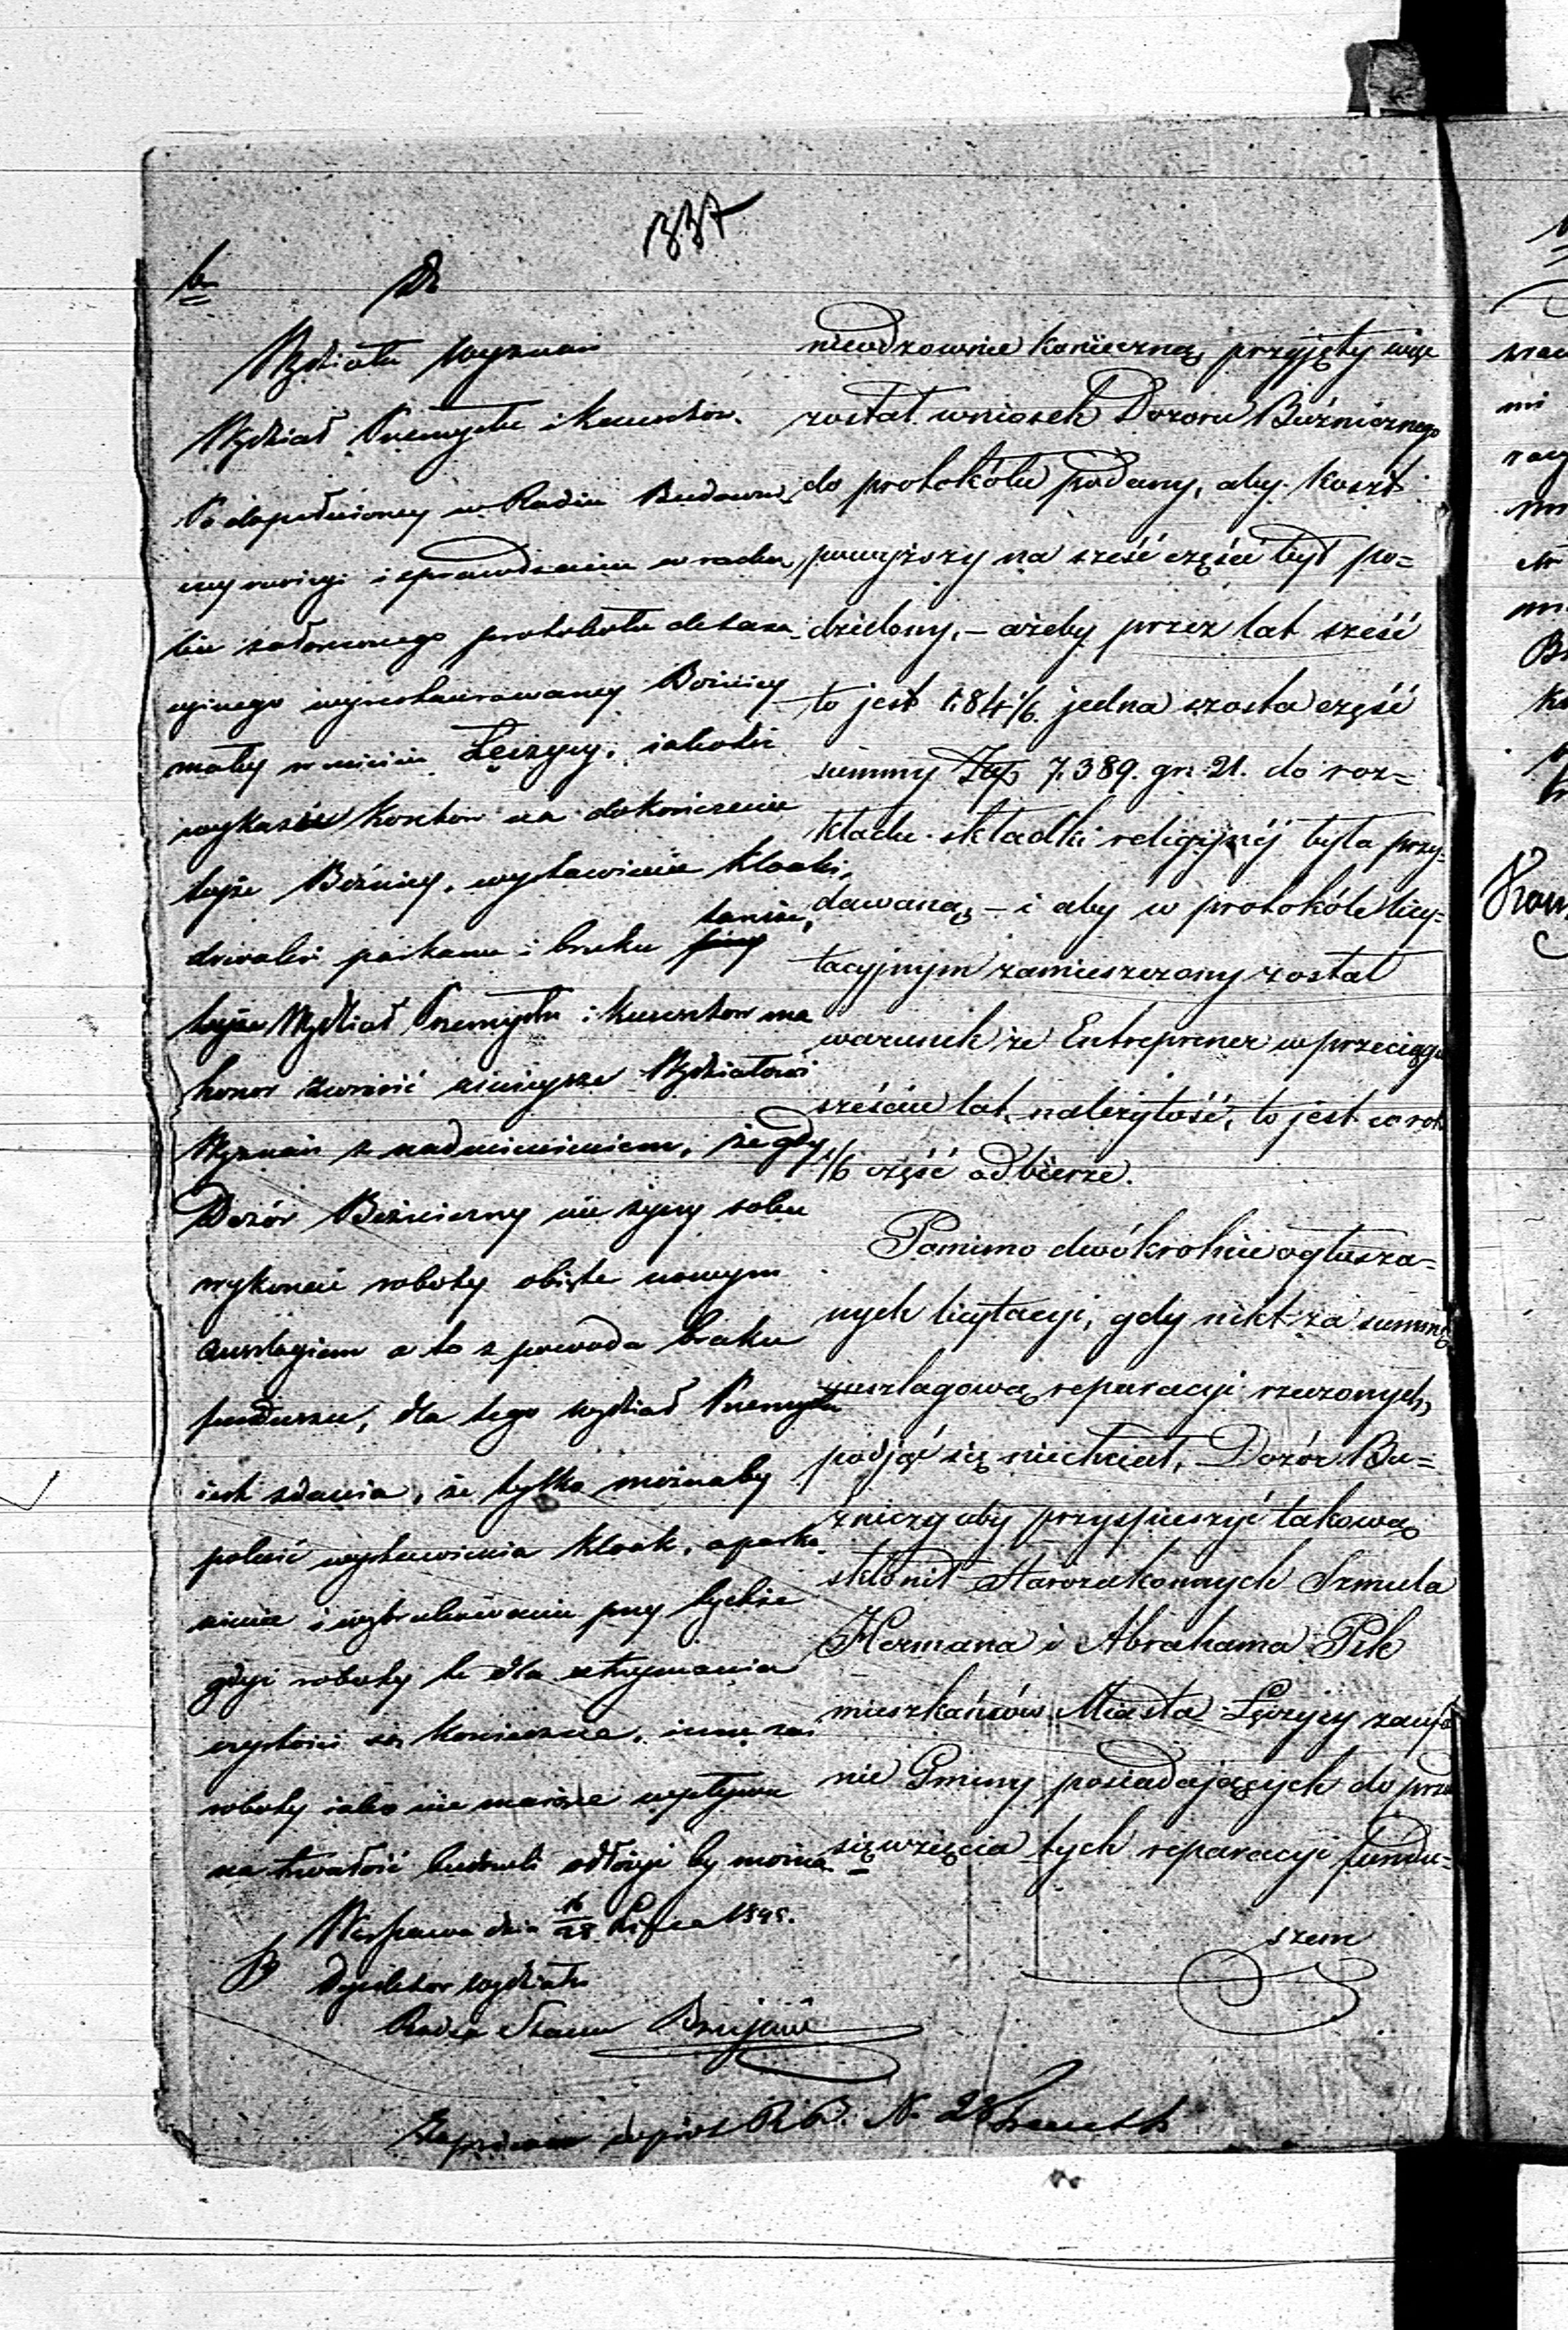 337
Do
Wydziału Wyznań
Wydział Przemysłu i Kunsztów.
Po dopełnioney w Radzie Budown
czney rewizyi i sprawdzeniu w rachu
bie załączonego protokołu detaxa
cyjnego wyrestaurowaney Bóżnicy
małey w mieście Łęczycy, jakoteż
wykazu kosztów na dokończenie
teyże Bóżnicy, wystawienie kloaki,
drwalki parkanu i bruku tamże,
tuteyszy Wydział Przemysłu i Kunsztów ma
honor zwrócić niniejsze Wydziałowi
Wyznań z nadmienieniem, że gdy
Dozór Bóżniczny nie życzy sobie
wykonać roboty objęte nowym
anszlagiem a to z powodu braku
funduszu, dla tego Wydział Przemysłu
jest zdania, że tylko możnaby
polecić wystawienia kloak, oparka
nienie i wybrukowanie przy tychże
gdyż roboty te dla utrzymania
czystości są konieczne, inne zaś
roboty jako nie mające wpływu
na trwałość budowli odłożyć by można
Warszawa dnia 16/28 Lipca 1845.
Dyrektor Wydziału
Radca Stanu
nieodzownie konieczną, przyjęty więc
został wniosek Dozoru Bużnicznego
do protokółu podany, aby koszt
powyższy na sześć części był po=
dzielony, – ażeby przez lat sześć
to jest 1841/6. jedna szosta część
summy Złp 7,389. gr. 21. do roz=
kładu składki religijnéj była przy=
dawaną, – i aby w protokóle licy=
tacyjnym zamieszczony został
warunek że Entreprener w przeciągu
sześciu lat, należytość, to jest co rok
1/6 część odbierze.
Pomimo dwókrotnie ogłasza=
nych licytacyi, gdy nikt za summę
anszlagową reparacyi rzeczonych,
podjąć się niechciał, Dozór Bu=
żniczy aby przyspieszyć takową
skłonił Starozakonnych Szmula
Hermana i Abrahama Pik
mieszkańców Miasta Łęczycy zaufa
nie Gminy posiadających do przed
sięwzięcia tych reparacyi fundu=
szem